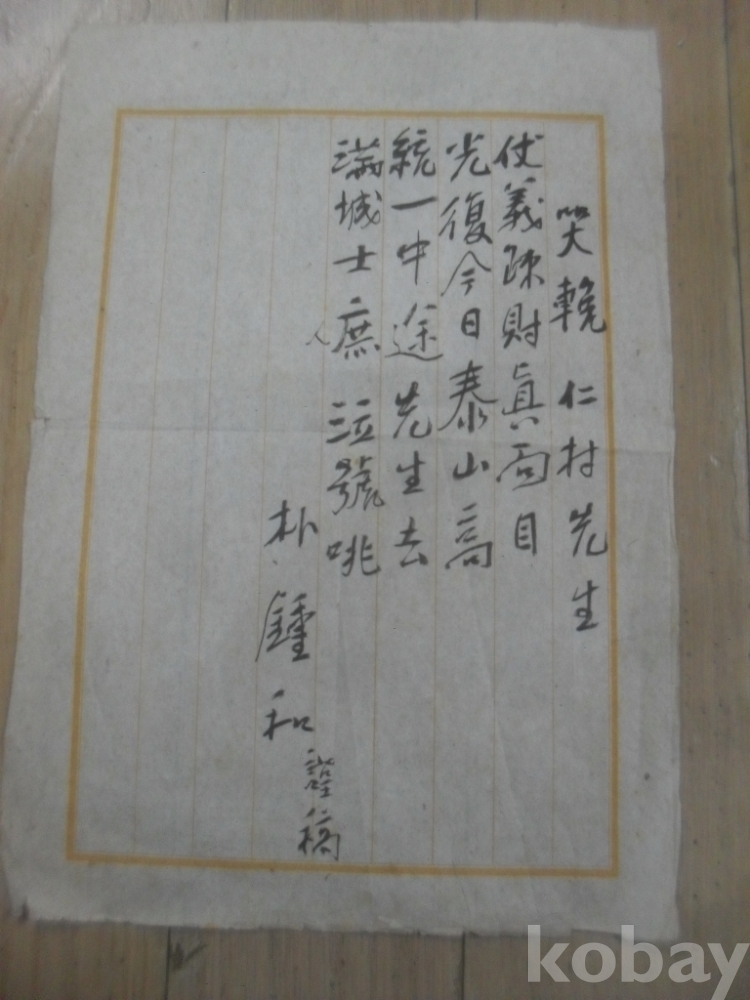 哭輓 仁村先生
仗義疎財眞面目
光復今日泰山高
統一中途先生去
滿城士庶泣號咷
人
朴鍾和 謹稿
kobay